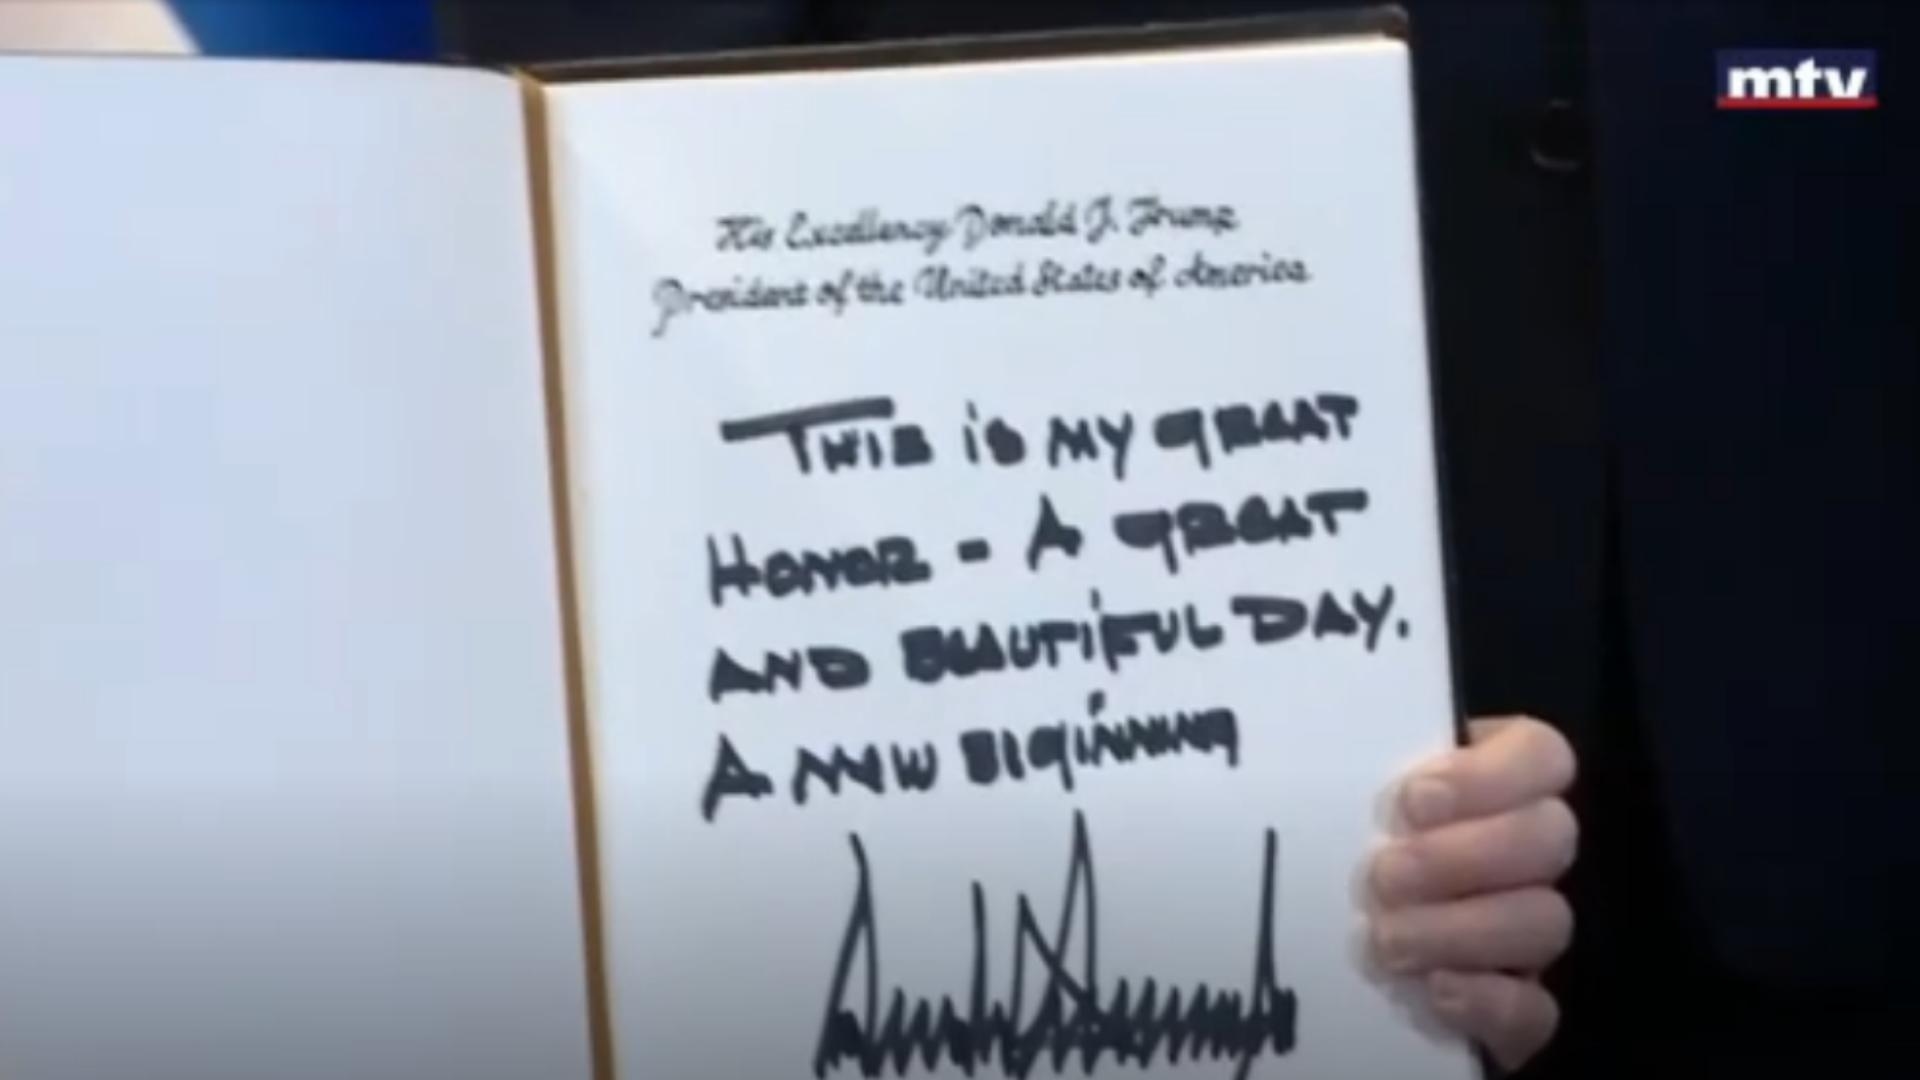 mtv
His Excellency Donald J. Trump
President of the United States of America
THIS is MY GREAT
HONOR - A GREAT
AND BEAUTIFUL DAY.
A NEW BEGINNING